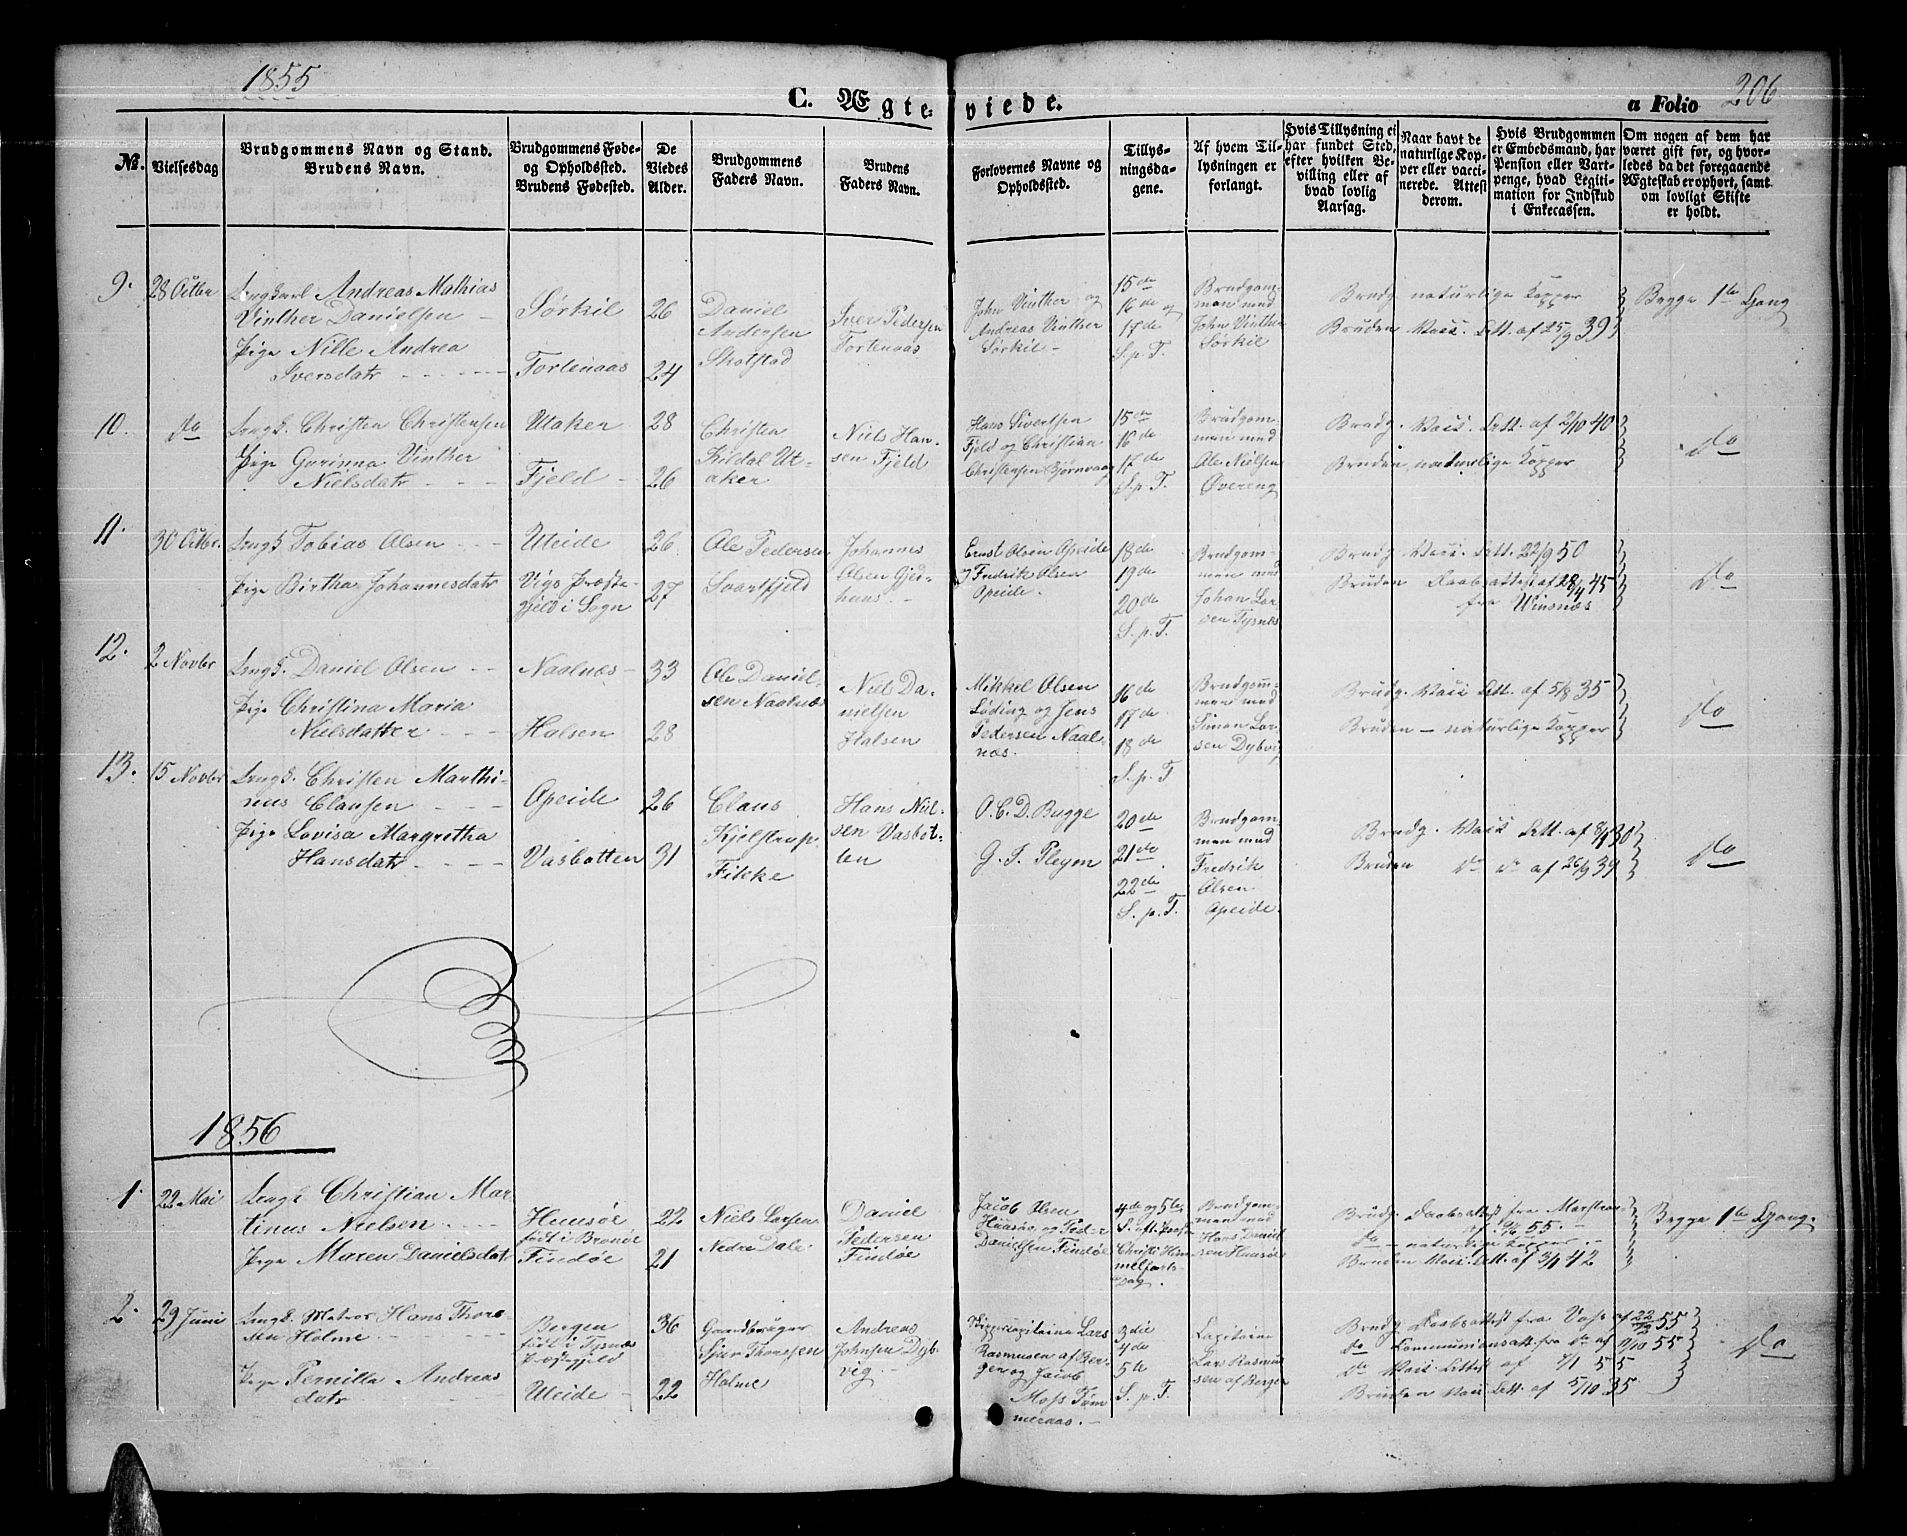 1855
C. Ægteviede.
a Folio 206
No.
Vielsesdag
Brudgommens Navn og Stand.
Brudens Navn.
Brudgommens Føde-
og Opholdssted.
Brudens Fødested.
De
Viedes
Alder.
Brudgommens
Faders Navn.
Brudens
Faders Navn.
Forlovernes Navne og
Opholdssted.
Tillys-
ningsda-
gene.
Af hvem Til-
lysningen er
forlangt.
Hvis Tillysning ei
har fundet Sted,
efter hvilken Be-
villing eller af
hvad lovlig
Aarsag.
Naar havt de
naturlige Kop-
per eller vacci-
nerede. Attest
derom.
Hvis Brudgommen
er Embedsmand, har
Pension eller Vart-
penge, hvad Legiti-
mation for Indskud
i Enkecassen.
Om nogen af dem har
været gift før, og hvor-
ledes da det foregaaende
Ægteskab er ophørt, samt
om lovligt Skifte
er holdt.
9.
28 Octbr
Ungkarl Andreas Mathias
Vinther Danielsen
Pige Nille Andrea
Iversdatr
Sørkil
Tortenaas
26
24
Daniel
Andersen
Skolstad
Iver Pedersen
Tortenaas
John Vinther og
Andreas Vinther
Sørkil
15de
16de og
17de
S. p. T.
Brudgom-
men med
John Vinther
Sørkil
Brudg naturlige Kopper
Bruden Vacc. Att. af 25/9 39
Begge 1te Gang
10.
do
Ungk. Christen Christensen
Pige Gurinna Vinther
Nielsdatr
Utaker
Fjeld
28
26
Christen
Kildal Ut-
aker
Niels Han-
sen Fjeld
Hans Sivertsen
Fjeld og Christian
Christensen Bjørnvaag
15de
16de
17de
S. p. T.
Brudgom-
men med
Ole Nielsen
Øvereng
Brudg. Vacc. Att. af 2/10 40
Bruden naturlige Kopper
do
11.
30 Octbr.
Ungk Tobias Olsen
Pige Birtha Johannesdatr
Uteide
Vigs Præste-
gjeld i Sogn
26
27
Ole Pedersen
Svartfjeld
Johannes
Olsen Gjer-
huus
Ernst Olsen Apeide
og Fredrik Olsen
Apeide.
18de
19de
20de
S. p. T.
Brudgom-
men med
Johan Lar-
sen Tysnæs
Brudg. Vacc. Att. 22/9 50
Bruden Daabsattest af 28/4 45
fra Winsnæs
do
12.
2 Novbr
Ungk. Daniel Olsen
Pige Christina Maria
Nielsdatter
Naalnæs
Halsen
33
28
Ole Daniel-
sen Naalnæs
Niel Da-
nielsen
Halsen
Mikkel Olsen
Løding og Jens
Pedersen Naal-
næs.
16de
17de
18de
S. p. T
Brudgom-
men med
Simon Lar-
sen Dybvig
Brudg. Vacc Att. af 5/8 35
Bruden – naturlige Kopper
do
13.
15 Novbr
Ungk. Christen Marthi-
nus Clausen
Pige Lovisa Margretha
Hansdatr
Apeide
Vasbotten
26
31
Claus
Kjelstrup
Fikke
Hans Niel-
sen Vasbot-
ten
O. C. D. Bugge
G. T. Pleym
20de
21de
22de
S. p. T.
Brudgom-
men med
Fredrik
Olsen
Apeide.
Brudg. Vacc Att. af 8/9 30
Bruden do do af 26/9 39
do
1856
1.
22 Mai
Ungk Christian Mar-
tinus Nielsen
Pige Maren Danielsdatr
Huusøe
født i Brønøe
Findøe
22
21
Niels Larsen
Nedre Dale
Daniel
Pedersen
Findøe
Jacob Olsen
Huusøe og Peder
Danielsen Findøe
4de og 5te
S. eft. Paask
Christi Him-
melfarts-
Dag.
Brudgom-
men med
Hans Daniel-
sen Huusøe
Brudg. Daabsattest fra
do – naturlige Kopper
Bruden Vacc. Att. af 3/9 42
Begge 1te Gang.
2.
29 Juni
Ungk. Matros Hans Thors-
sen Holme
Pige Pernilla Andreas
datr
Bergen
født i Tysnæs
Præstegjeld
Uteide
36
22
Gaardbruger
Sjur Thorssen
Holme
Andreas
Johnsen Dyb-
vig
Lars
Rasmusen af Ber-
gen og Jacob
Moss Tøm-
meraas.
3die
4de
5te
S. p. T.
Capitaine
Lars Rasmus-
sen af Bergen
Brudg Daabsattest fra Voss af 22/12 55
do Communionsatt. fra do af 9/10 55
do Vacc. Attest af 7/1 55
Bruden Vacc. Att. af 5/10 35
do